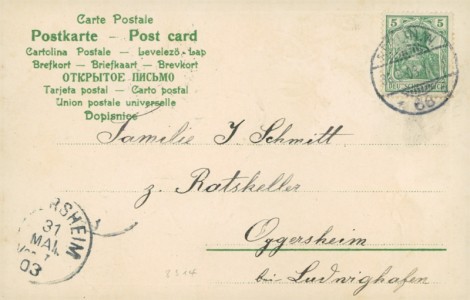 Carte Postale
Postkarte – Post card
Cartolina Postale – Levelező-Lap
Brefkort – Briefkaart – Brevkort
ОТКРЫТОЕ ПИСЬМО
Tarjeta postal – Carto postal
Union postale universelle
Dopisnice
5 5
Familie J. Schmitt
z. Ratskeller
Oggersheim
bei Ludwigshafen
RSHEIM
31
MAI
03
68